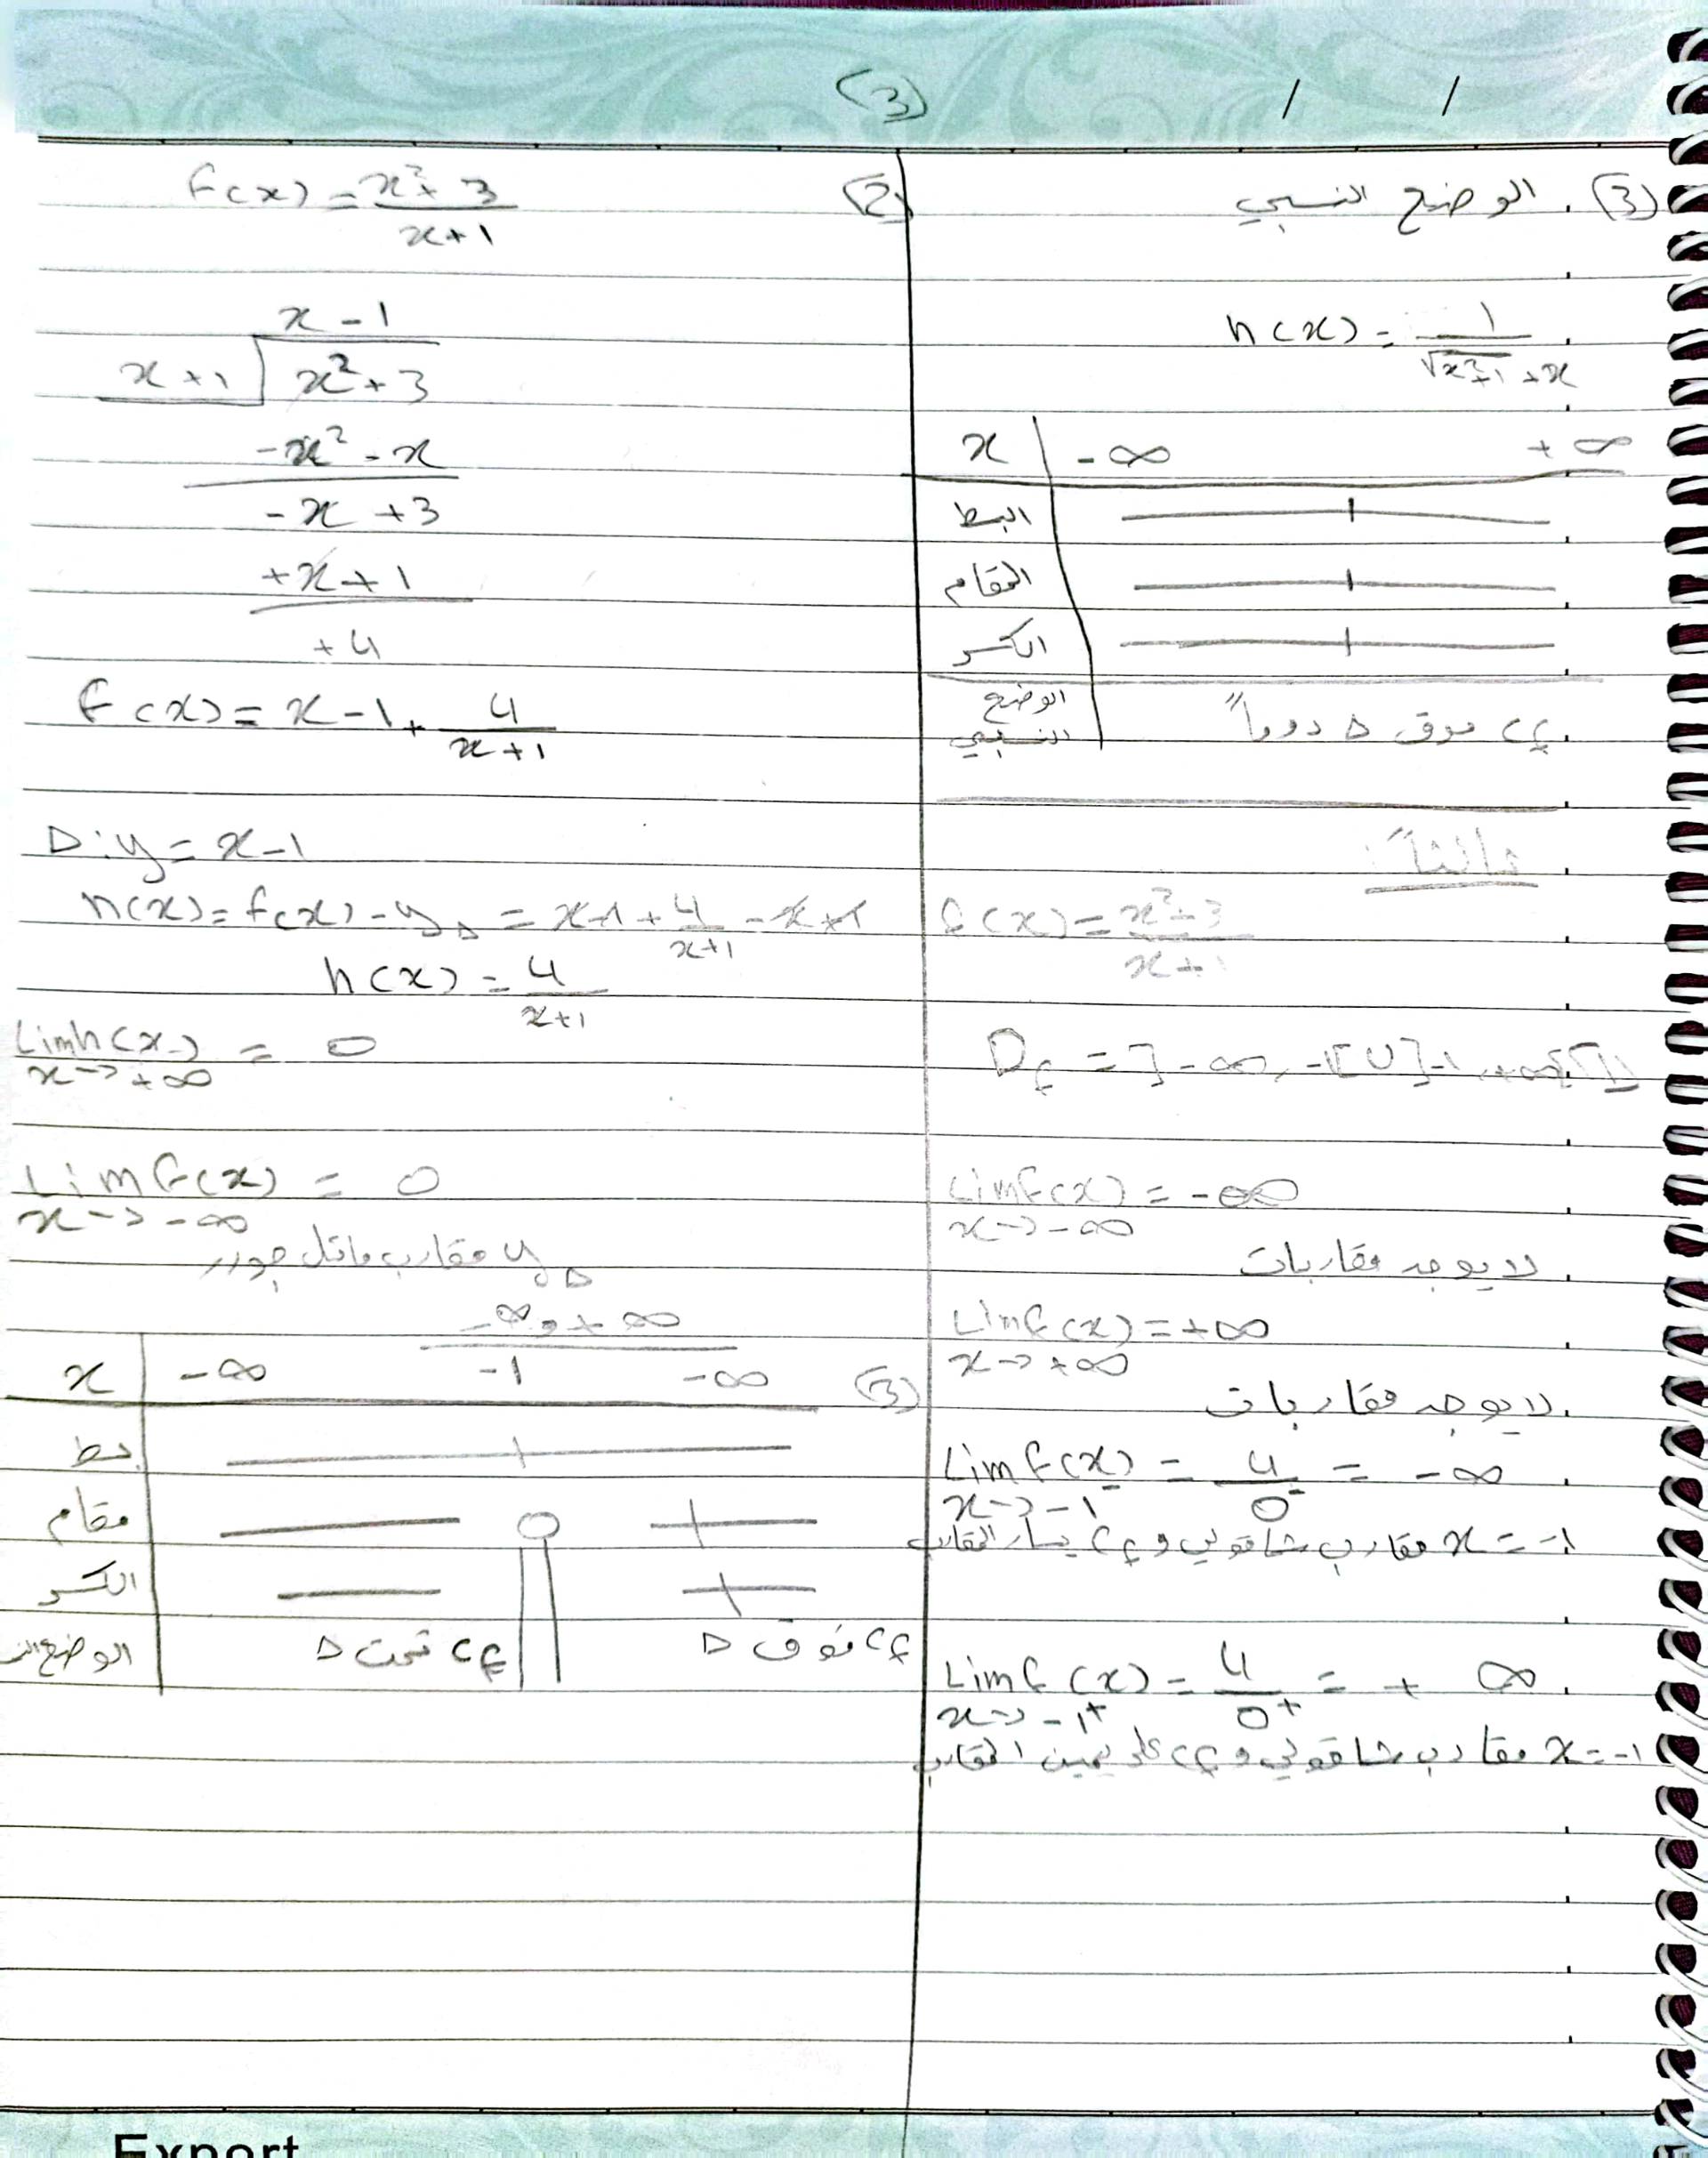 (3)
/ /
(3) الوضع النسبي
h(x) = 1 / √x²+1 + x
x | -∞ +∞
البسط +
المقام +
الكسر +
الوضع النسبي Cf فوق Δ دوماً
ثالثاً:
f(x) = x²+3 / x+1
(1) Df = ]-∞, -1[ U ]-1, +∞[
Lim f(x) = -∞
x→-∞
لا يوجد مقاربات
Lim f(x) = +∞
x→+∞
لا يوجد مقاربات
Lim f(x) = 4/0⁻ = -∞
x→-1⁻
x = -1 مقارب شاقولي و Cf يسار المقارب
Lim f(x) = 4/0⁺ = +∞
x→-1⁺
x = -1 مقارب شاقولي و Cf على يمين المقارب
(2) f(x) = x²+3 / x+1
x - 1
x+1 | x²+3
-x² - x
-x +3
+x+1
+4
f(x) = x-1 + 4 / x+1
Δ: y = x-1
h(x) = f(x) - yΔ = x-1 + 4/x+1 - x+1
h(x) = 4 / x+1
Lim h(x) = 0
x→+∞
Lim f(x) = 0
x→-∞
yΔ مقارب مائل جوار
-∞ و +∞
(3)
x | -∞ -1 -∞
بسط +
مقام — 0 +
الكسر — || +
الوضع Cf تحت Δ || Cf فوق Δ
Expert